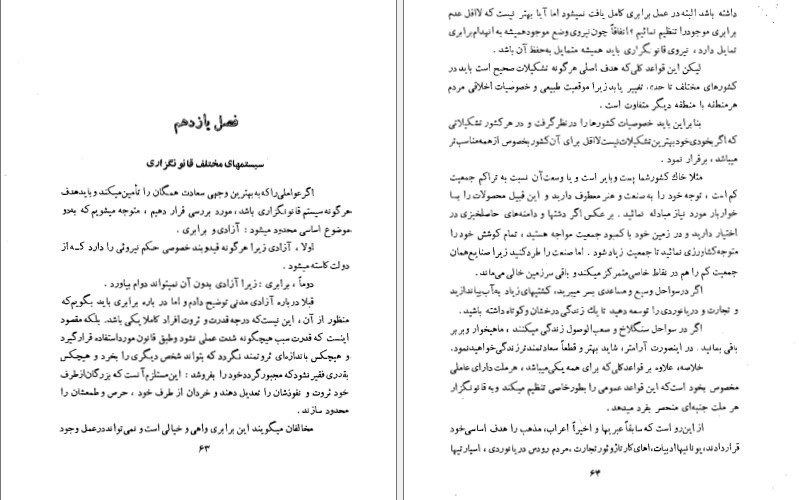 فصل یازدهم
سیستمهای مختلف قانونگزاری
اگر عواملی را که به بهترین وجهی سعادت همگان را تأمین میکند و باید هدف
هرگونه سیستم قانونگزاری باشد، مورد بررسی قرار دهیم ، متوجه میشویم که بدو
موضوع اساسی محدود میشود : آزادی و برابری .
اولا ، آزادی زیرا هرگونه قیدوبند خصوصی حکم نیروئی را دارد که از
دولت کاسته میشود .
دوماً ، برابری : زیرا آزادی بدون آن نمیتواند دوام بیاورد .
قبلا درباره آزادی مدنی توضیح دادم و اما در باره برابری باید بگویم که
منظور از آن ، این نیست که درجه قدرت و ثروت افراد کاملا یکی باشد. بلکه مقصود
اینست که قدرت سبب هیچگونه شدت عملی نشود و طبق قانون مورد استفاده قرار گیرد
و هیچکس باندازه‌ای ثروتمند نگردد که بتواند شخص دیگری را بخرد و هیچکس
بقدری فقیر نشود که مجبور گردد خود را بفروشد : این مستلزم آنست که بزرگان از طرف
خود ثروت و نفوذشان را تعدیل دهند و خردان از طرف خود ، حرص و طمعشان را
محدود سازند .
مخالفان میگویند این برابری واهی و خیالی است و نمی‌تواند در عمل وجود
۶۳
داشته باشد البته در عمل برابری کامل یافت نمیشود اما آیا بهتر نیست که لااقل عدم
برابری موجود را تنظیم نمائیم ؟ اتفاقاً چون نیروی وضع موجود همیشه به انهدام برابری
تمایل دارد ، نیروی قانونگزاری باید همیشه متمایل به حفظ آن باشد .
لیکن این قواعد کلی که هدف اصلی هرگونه تشکیلات صحیح است باید در
کشورهای مختلف تا حدی، تغییر یابد زیرا موقعیت طبیعی و خصوصیات اخلاقی مردم
هر منطقه با منطقه دیگر متفاوت است .
بنابراین باید خصوصیات کشورها را در نظر گرفت و در هر کشور تشکیلاتی
که اگر بخودی خود بهترین تشکیلات نیست لااقل برای آن کشور بخصوص از همه مناسب‌تر
میباشد ، برقرار نمود .
مثلا خاک کشور شما پست و بایر است و یا وسعت آن نسبت به تراکم جمعیت
کم است ، توجه خود را به صنعت و هنر معطوف دارید و این قبیل محصولات را با
خواربار مورد نیاز مبادله نمائید . برعکس اگر دشتها و دامنه‌های حاصلخیزی در
اختیار دارید و در زمین خود با کمبود جمعیت مواجه هستید ، تمام کوشش خود را
متوجه کشاورزی نمائید تا جمعیت زیاد شود . اما صنعت را طرد کنید زیرا صنایع همان
جمعیت کم را هم در نقاط خاصی متمرکز میکند و باقی سرزمین خالی می‌ماند.
اگر در سواحل وسیع و مساعدی بسر میبرید، کشتیهای زیاد به آب بیاندازید
و تجارت و دریانوردی را توسعه دهید تا یک زندگی درخشان و کوتاه داشته باشید .
اگر در سواحل سنگلاخ و صعب‌الوصول زندگی میکنند ، ماهیخوار و بربر
باقی بمانید . در اینصورت آرامتر، شاید بهتر و قطعاً سعادتمندتر زندگی خواهید نمود.
خلاصه، علاوه بر قواعد کلی که برای همه یکی میباشد ، هر ملت دارای عاملی
مخصوص بخود است که این قواعد عمومی را بطور خاصی تنظیم میکند و به قانونگزار
هر ملت جنبه‌ای منحصر بفرد میدهد .
از این رو است که سابقاً عبریها و اخیراً اعراب، مذهب را هدف اساسی خود
قرار دادند، یونانیها ادبیات، اهای کارتاژ و تور تجارت ، مردم رودس دریانوردی ، اسپارتیها
۶۴